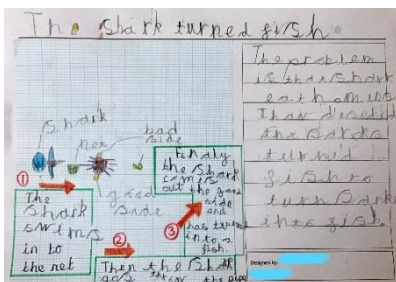 The shark turned fish
shark
net
bad
side
good
side
①
The
shark
swims
in to
the net
②
Then the Shark
gos
the pipe
③
Finaly
the shark
comis
out the good
side
and
has turned
into a
fish.
The problem
is that Shark
eat humans
turnd in
fish to
turn Shark
into fish!
Designed by: